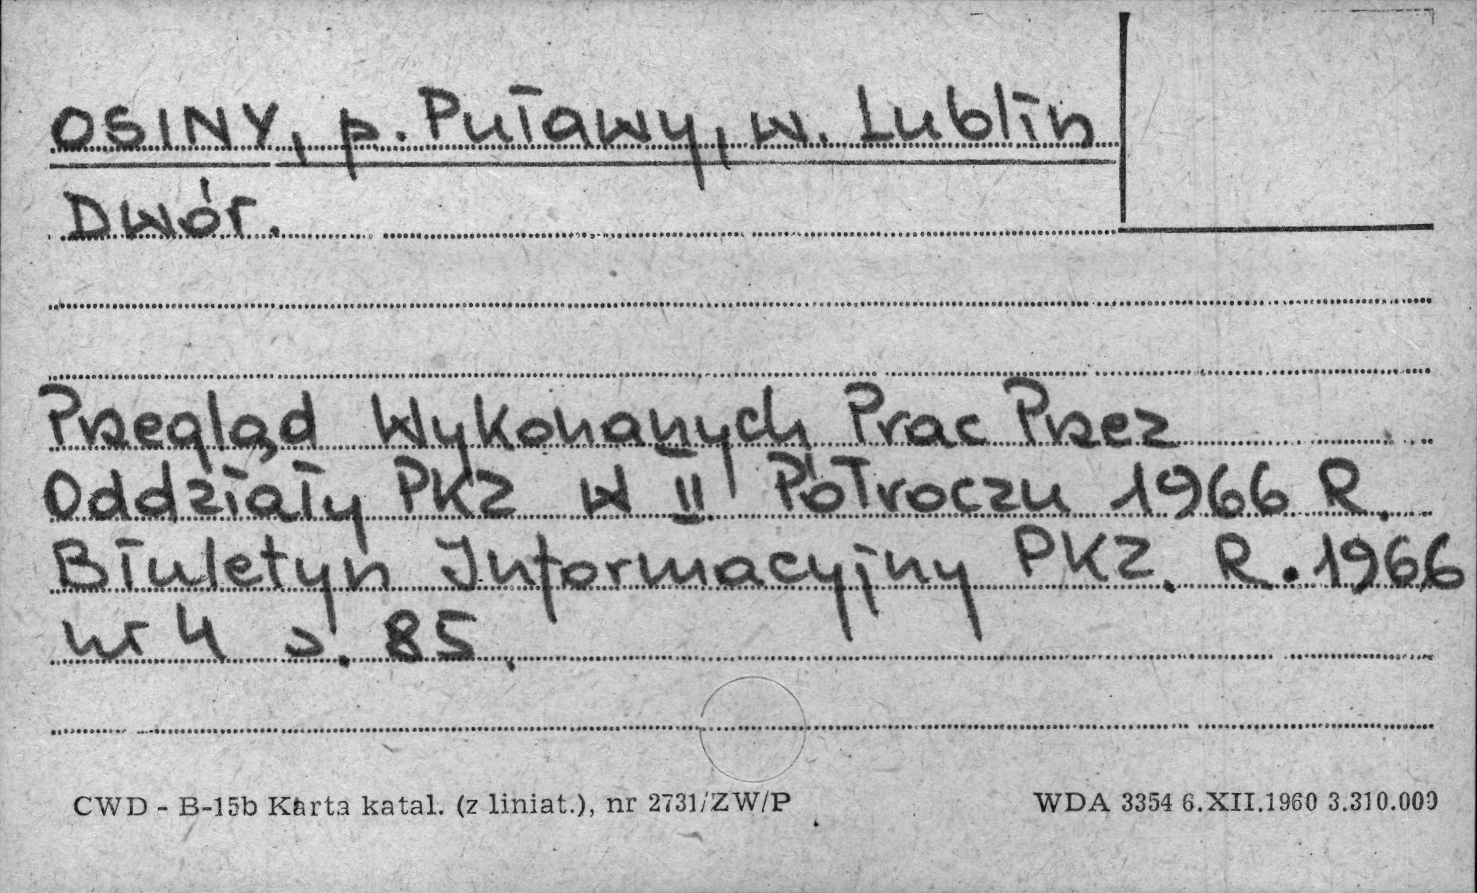 OSINY, p. Puławy, w. Lublin
Dwór.
Przegląd Wykonanych Prac Przez
Oddziały PKZ w II Półroczu 1966 R.
Biuletyn Informacyjny PKZ. R. 1966
nr 4 s. 85.
CWD - B-15b Karta katal. (z liniat.), nr 2731/ZW/P
WDA 3354 6.XII.1960 3.310.000